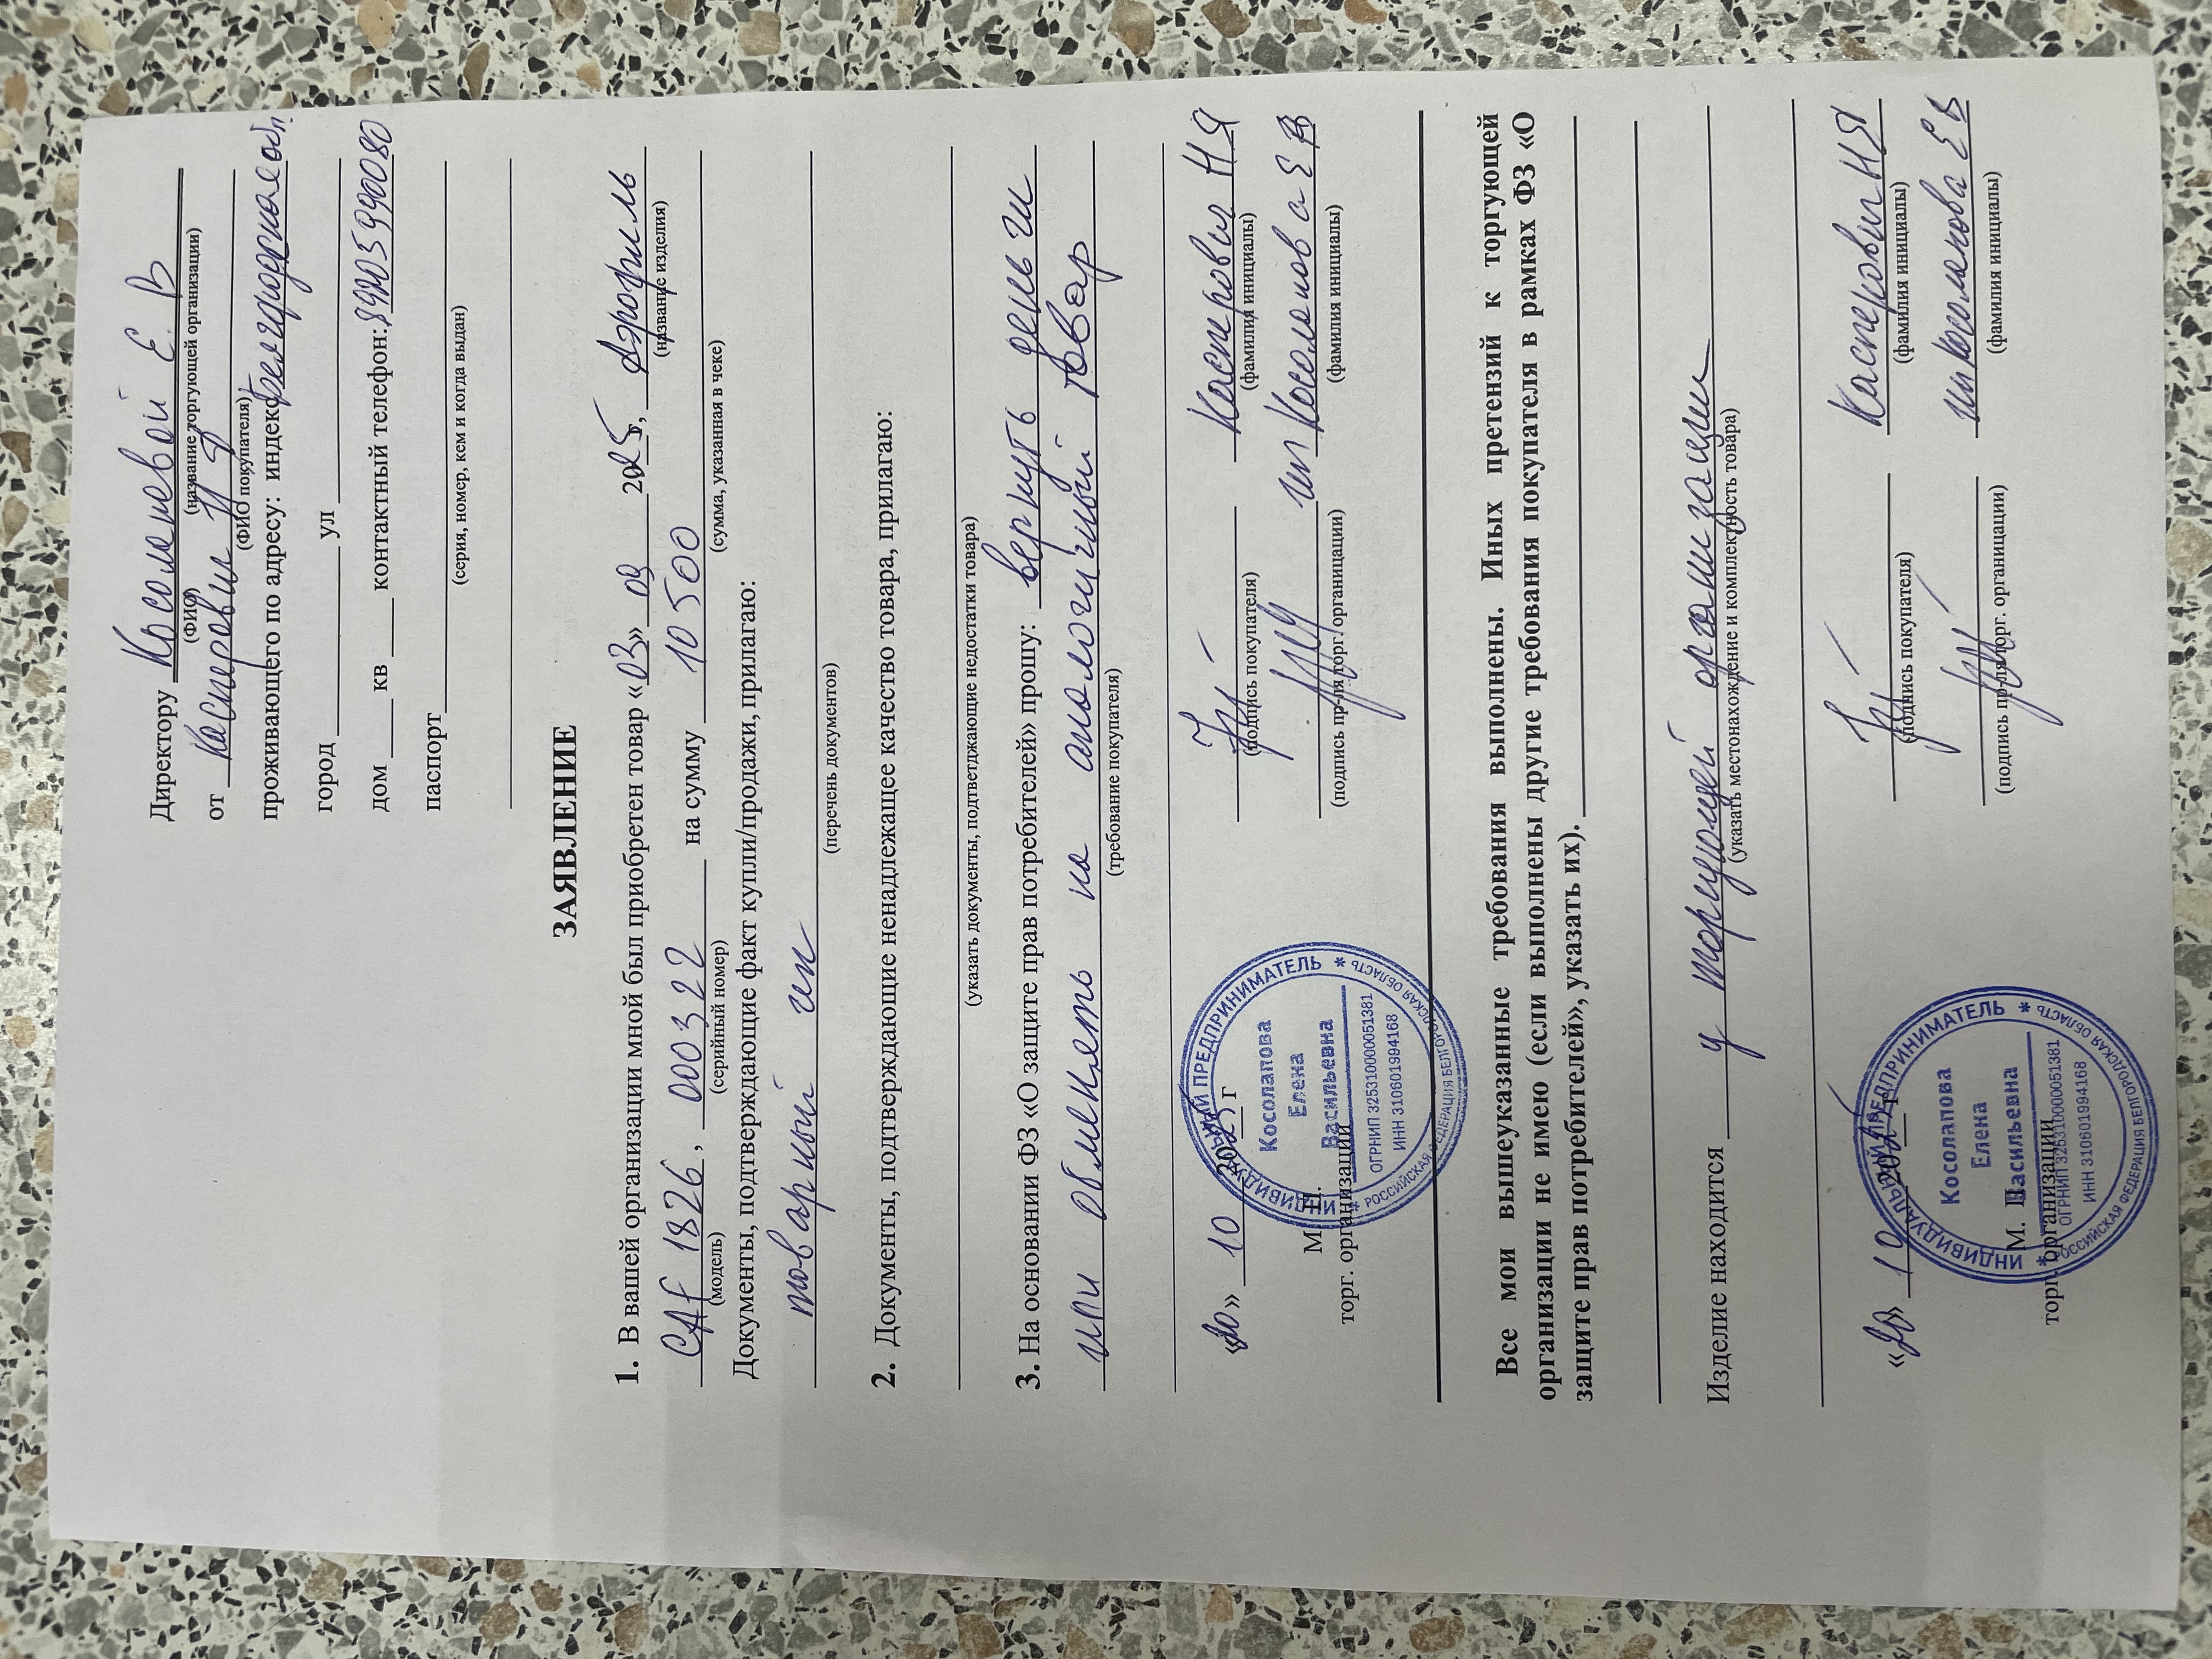 Директору Косолаповой Е. В
(ФИО) (название торгующей организации)
от Касперович Н Я
(ФИО покупателя)
проживающего по адресу: индекс Белгородская обл
город ул
дом кв контактный телефон: 89205940080
паспорт
(серия, номер, кем и когда выдан)
ЗАЯВЛЕНИЕ
1. В вашей организации мной был приобретен товар «03» 09 2025, Аэрогриль
(название изделия)
CAF 1826, 000322 на сумму 10500
(модель) (серийный номер) (сумма, указанная в чеке)
Документы, подтверждающие факт купли/продажи, прилагаю:
товарный чек
(перечень документов)
2. Документы, подтверждающие ненадлежащее качество товара, прилагаю:
(указать документы, подтветджающие недостатки товара)
3. На основании ФЗ «О защите прав потребителей» прошу: вернуть деньги
или обменять на аналогичный товар
(требование покупателя)
«20» 10 2025 г Касперович Н Я
(подпись покупателя) (фамилия инициалы)
М.П. ип Косолапова Е В
торг. организаций (подпись пр-ля торг. органицации) (фамилия инициалы)
ИНДИВИДУАЛЬНЫЙ ПРЕДПРИНИМАТЕЛЬ
* РОССИЙСКАЯ ФЕДЕРАЦИЯ БЕЛГОРОДСКАЯ ОБЛАСТЬ *
Косолапова
Елена
Васильевна
ОГРНИП 325310000051381
ИНН 310601994168
Все мои вышеуказанные требования выполнены. Иных претензий к торгующей
организации не имею (если выполнены другие требования покупателя в рамках ФЗ «О
защите прав потребителей», указать их).
Изделие находится у торгующей организации
(указать местонахождение и комплектность товара)
«20» 10 2025 Касперович Н Я
(подпись покупателя) (фамилия инициалы)
М. ип Косолапова Е В
торг. организации (подпись пр-ля торг. органицации) (фамилия инициалы)
ИНДИВИДУАЛЬНЫЙ ПРЕДПРИНИМАТЕЛЬ
* РОССИЙСКАЯ ФЕДЕРАЦИЯ БЕЛГОРОДСКАЯ ОБЛАСТЬ *
Косолапова
Елена
Васильевна
ОГРНИП 325310000051381
ИНН 310601994168